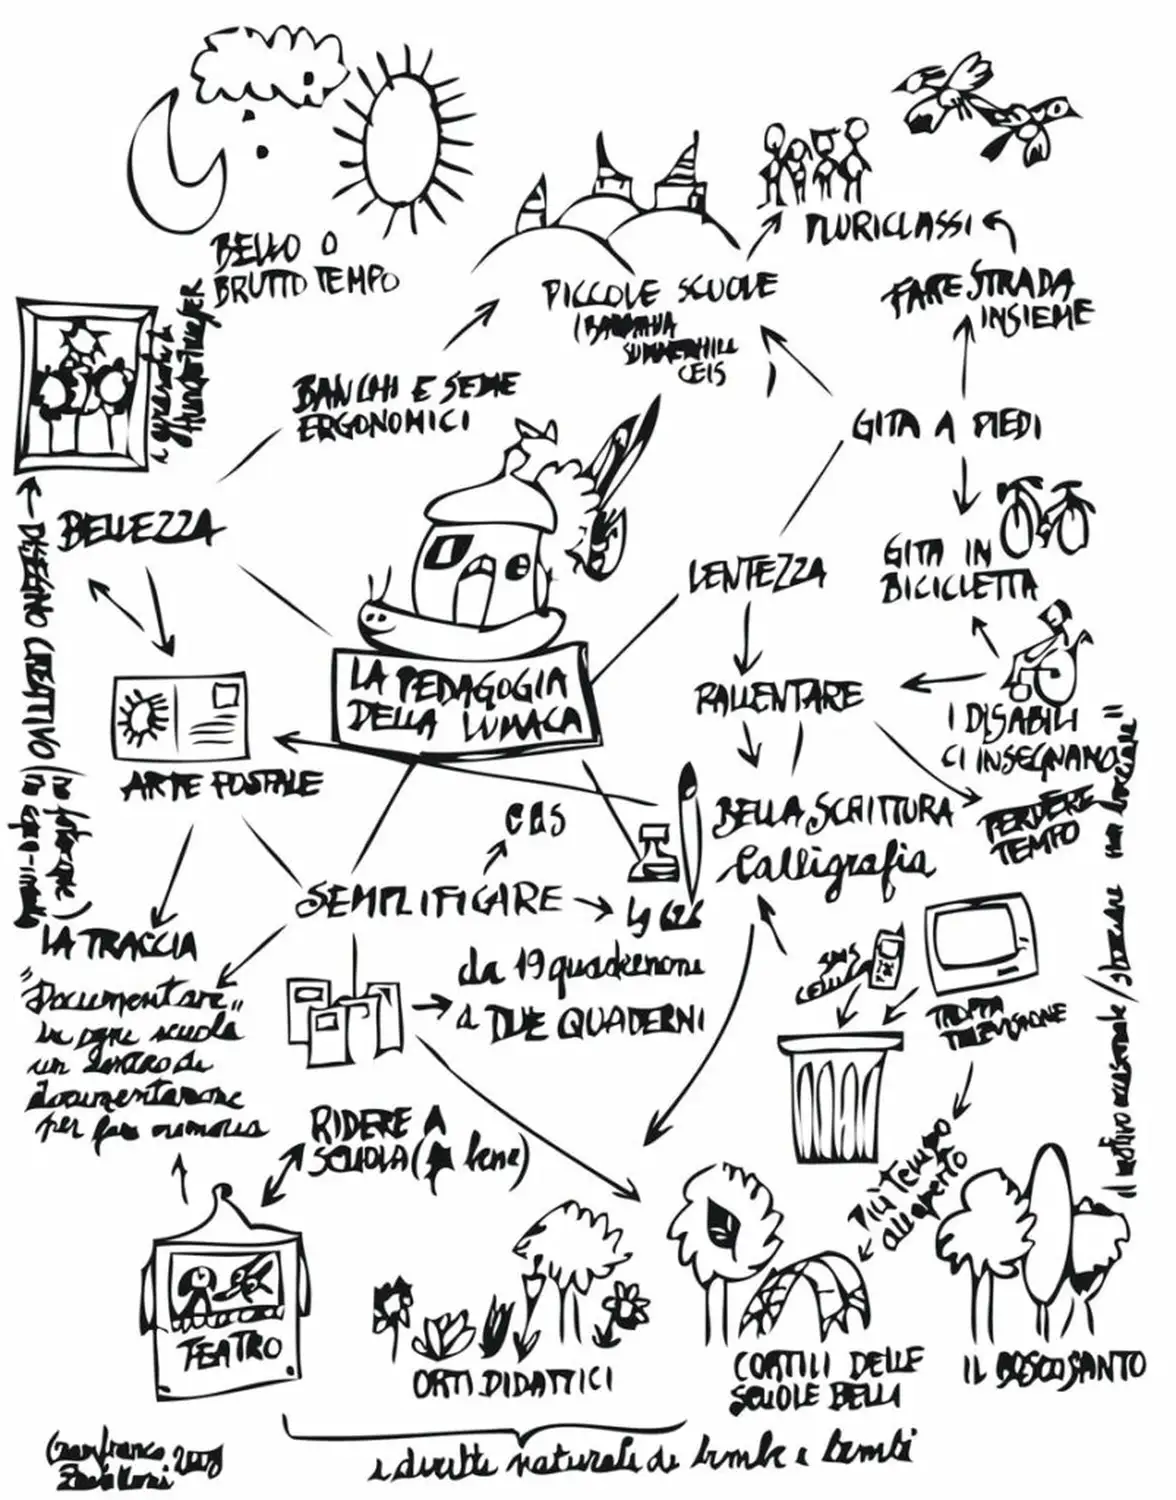 BELLO O
BRUTTO TEMPO
PICCOLE SCUOLE
(BARBIANA
SUMMERHILL
CEIS
)
PLURICLASSI
FARE STRADA
INSIEME
BANCHI E SEDIE
ERGONOMICI
GITA A PIEDI
BELLEZZA
GITA IN
BICICLETTA
LENTEZZA
DISEGNO CREATIVO
LA PEDAGOGIA
DELLA LUMACA
RALLENTARE
I DISABILI
CI INSEGNANO
ARTE POSTALE
BELLA SCRITTURA
Calligrafia
PERDERE
TEMPO
SEMPLIFICARE
LA TRACCIA
"Documentare"
in ogni scuola
un centro di
documentazione
per fare memoria
da 19 quadernone
A DUE QUADERNI
SMS
TROPPA
TELEVISIONE
RIDERE A
SCUOLA ( bene)
Più tempo
all'aperto
TEATRO
ORTI DIDATTICI
CORTILI DELLE
SCUOLE BELLI
IL BOSCO SANTO
i diritti naturali di bimbe e bimbi
Gianfranco
Zavalloni